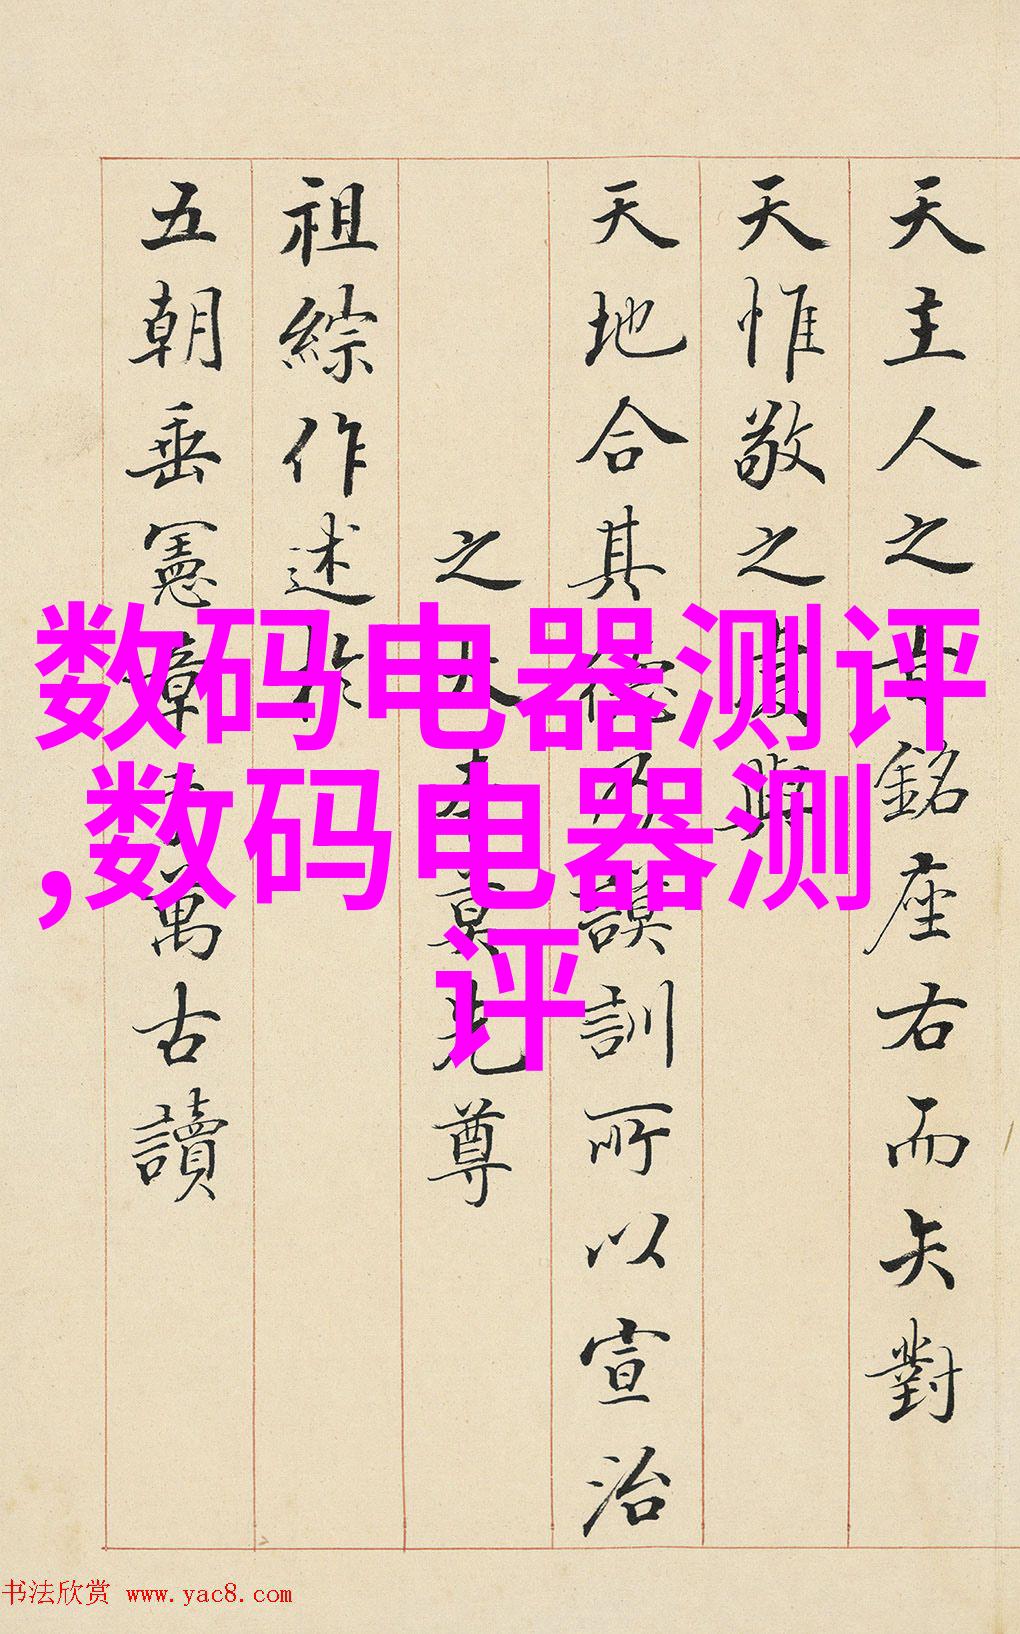 天主人之 銘座右而矢對
天惟敬之 與
天地合其德 謨訓所以宣治
之大本莫先尊
祖綜作述於
五朝垂憲章 萬古讀
数码电器测评
,数码电器测
评
书法欣赏 www.yac8.com